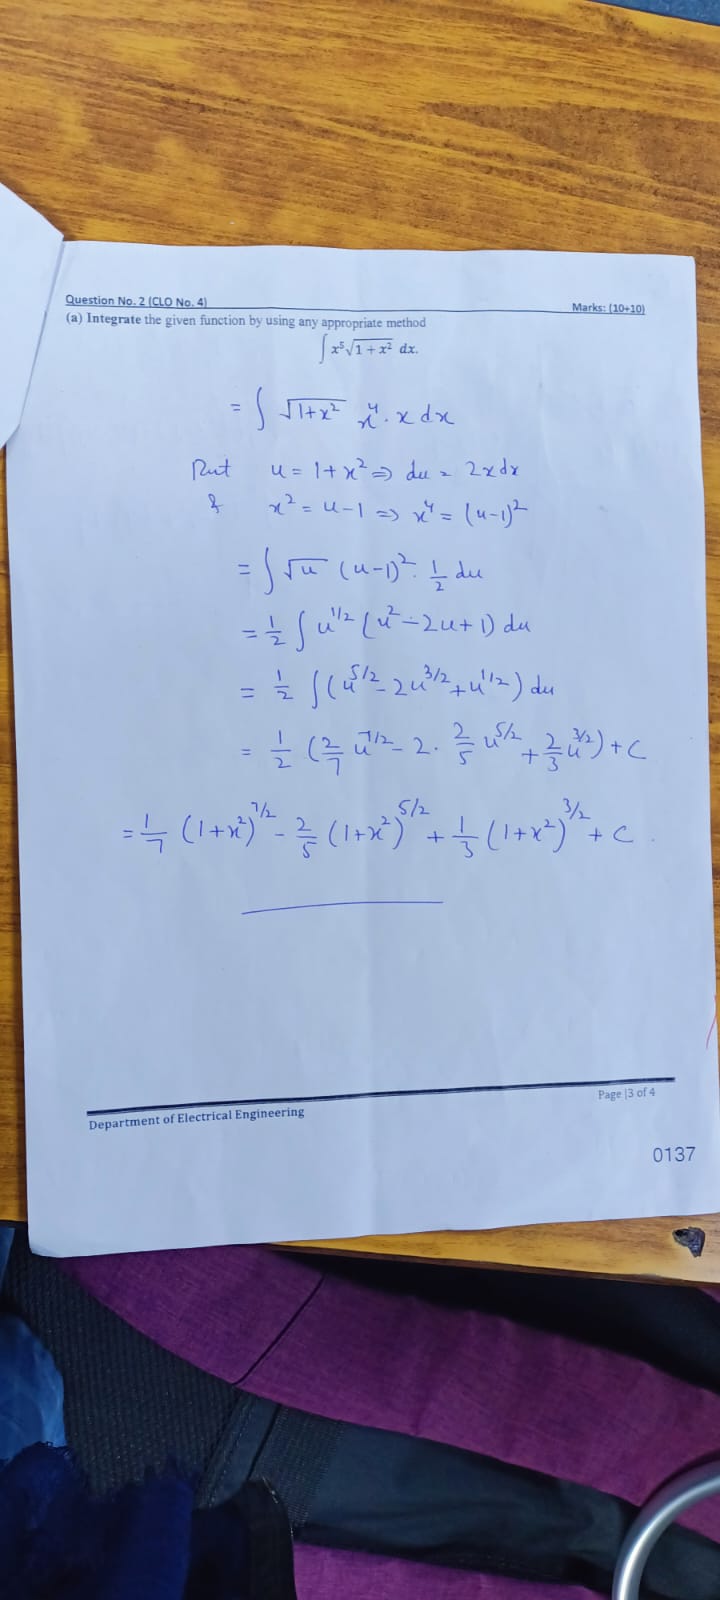 Question No. 2 (CLO No. 4) Marks: (10+10)
(a) Integrate the given function by using any appropriate method
∫ x⁵√(1 + x²) dx.
= ∫ √(1+x²) x⁴ . x dx
Put u = 1+x² ⇒ du = 2x dx
& x² = u-1 ⇒ x⁴ = (u-1)²
= ∫ √u (u-1)² . 1/2 du
= 1/2 ∫ u^1/2 (u² - 2u + 1) du
= 1/2 ∫ (u^5/2 - 2u^3/2 + u^1/2) du
= 1/2 (2/7 u^7/2 - 2 . 2/5 u^5/2 + 2/3 u^3/2) + C
= 1/7 (1+x²)^7/2 - 2/5 (1+x²)^5/2 + 1/3 (1+x²)^3/2 + C .
Page |3 of 4
Department of Electrical Engineering
0137